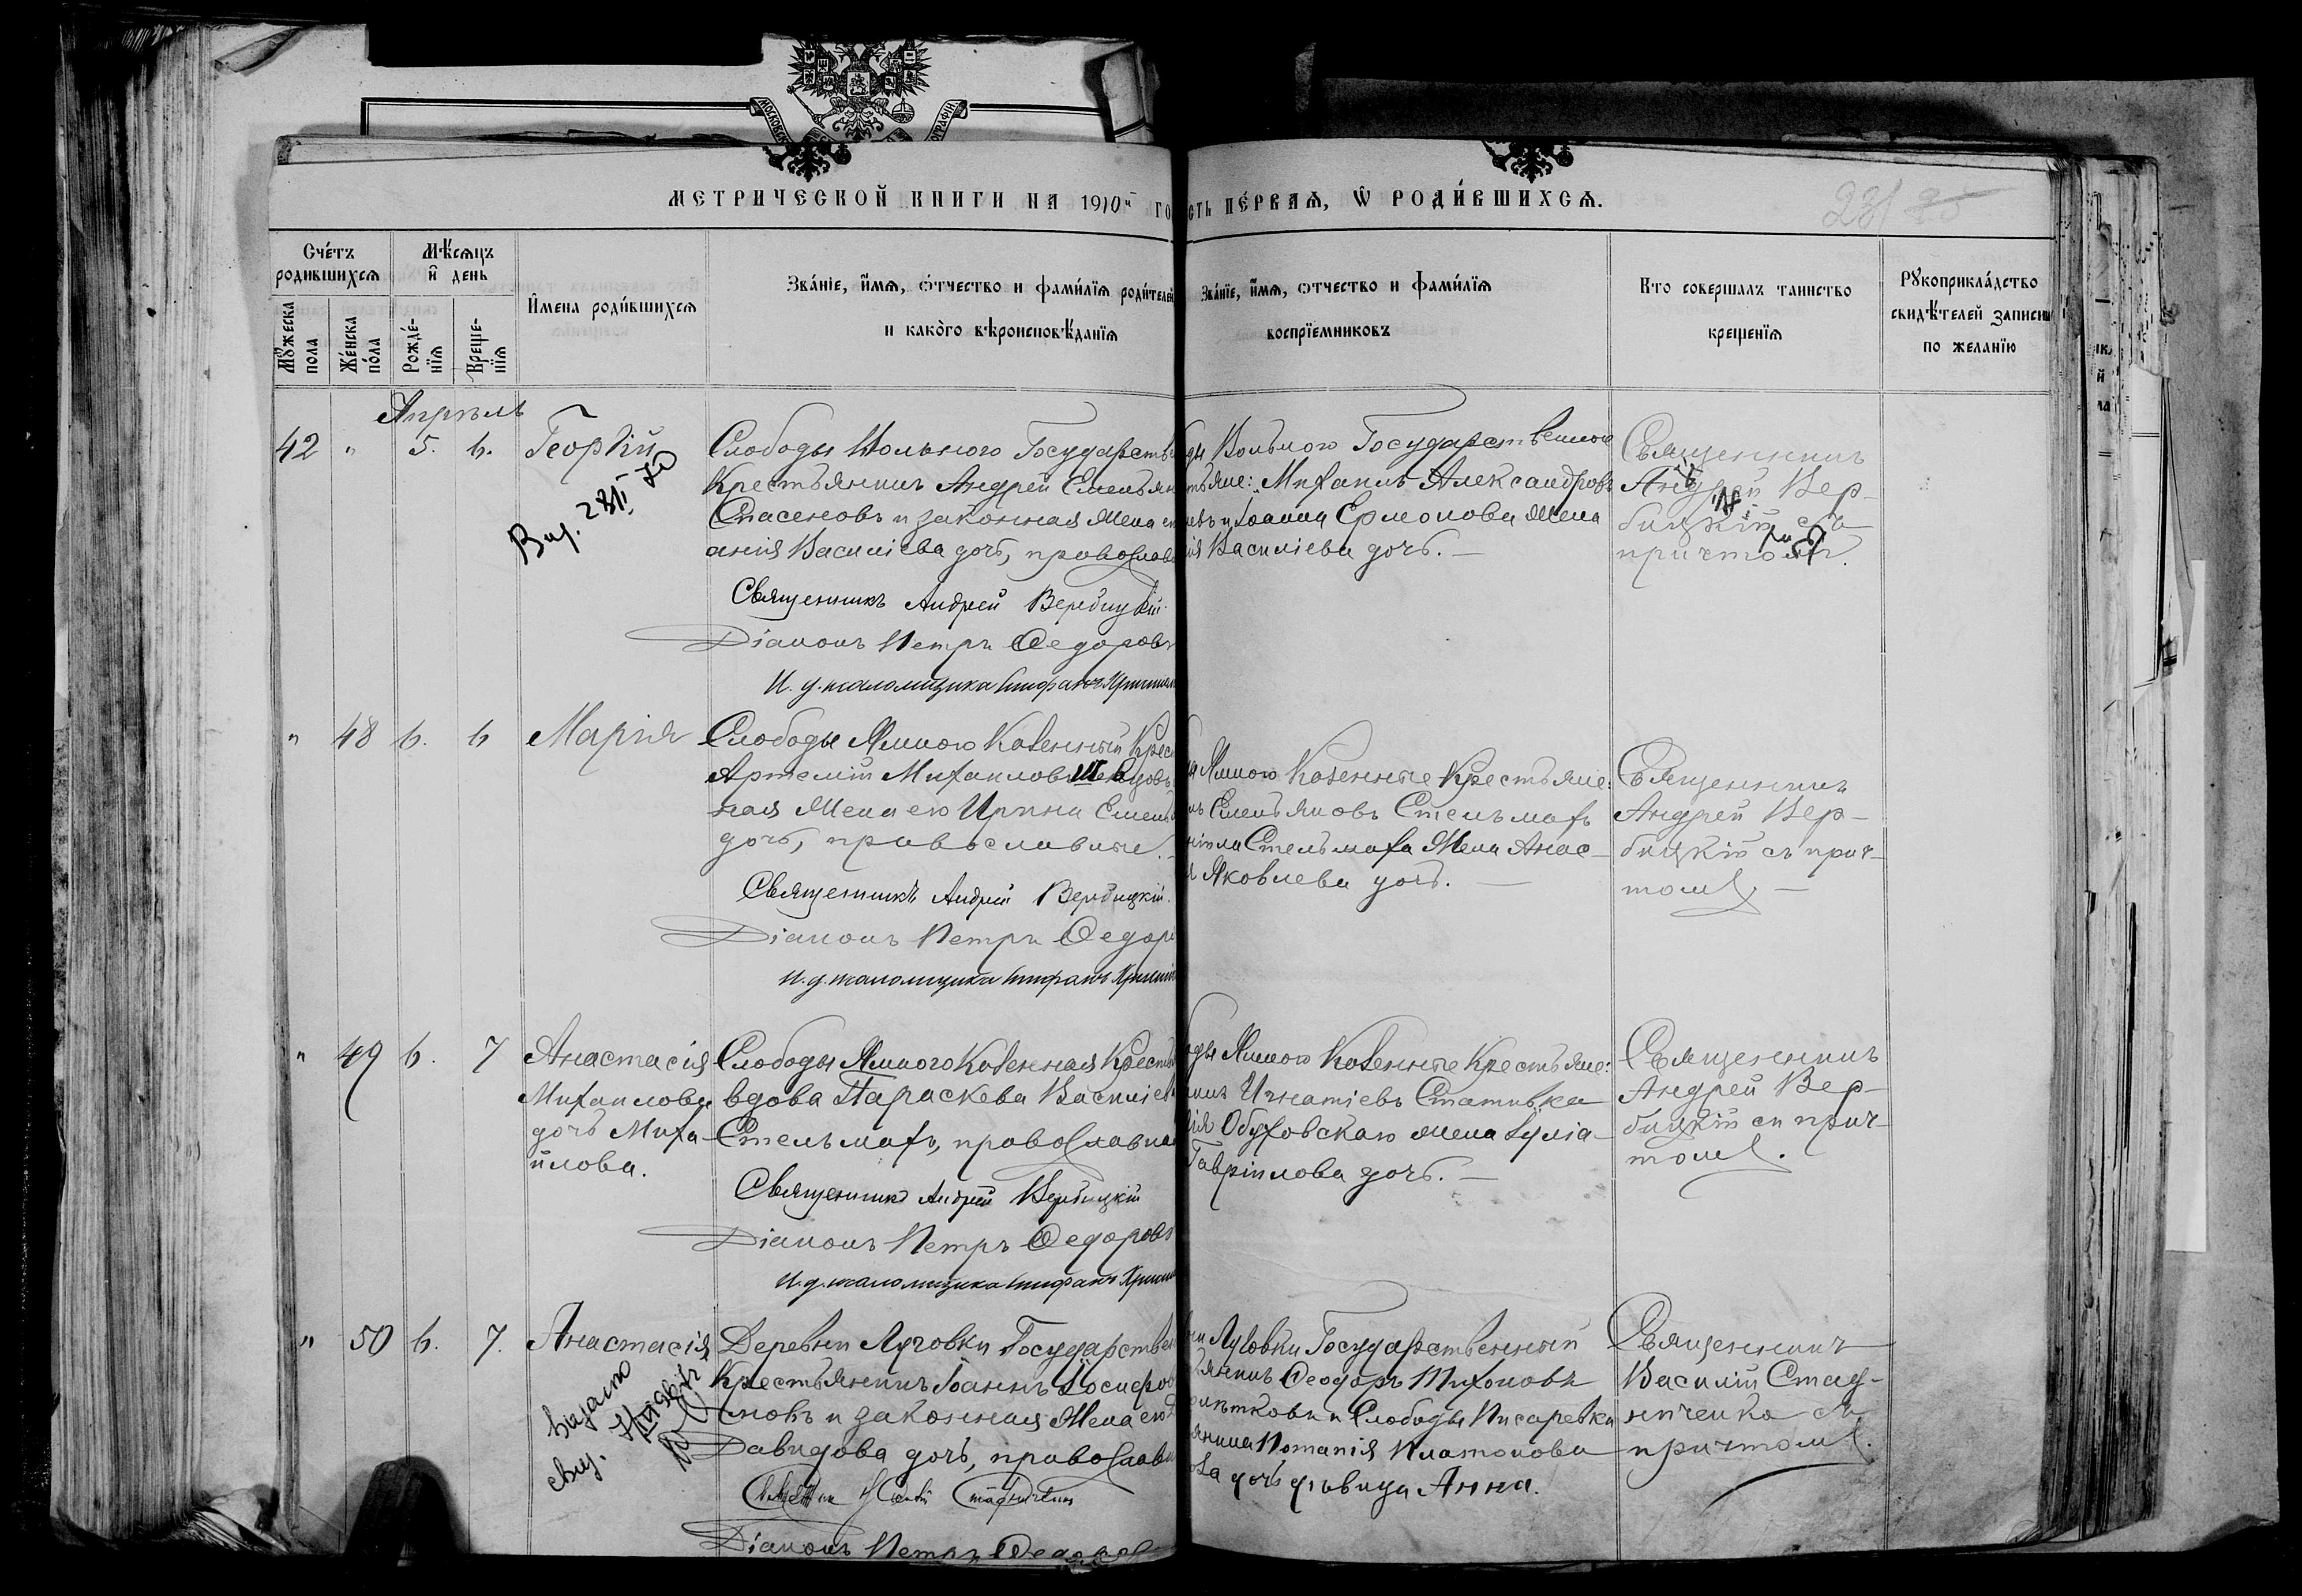 МОСКОВС
ОГРАФІИ
МЕТРИЧЕСКОЙ КНИГИ НА 1910й ГО
СТЬ ПЕРВАЯ, Ѡ РОДИВШИХСЯ.
281 25
Счетъ родившихся
Мѣсяцъ и день
Имена родившихся
Званіе, имя, отчество и фамилія родителей
и какого вѣроисповѣданія
Мужеска пола
Женска пола
Рожде-нія
Креще-нія
Званіе, имя, отчество и фамилія
воспріемниковъ
Кто совершалъ таинство
крещенія
Рукоприкладство
свидѣтелей записи
по желанію
Апрѣль
42 " 5. 6. Георгій
Слободы Вольного Государств
Крестьянинъ Андрей Емельян
Спасеновъ и законная жена е
анія Василіева дочь, православ
Священникъ Андрей Вербицкій.
Діаконъ Петръ Ѳедоровъ
И. д. псаломщика Стефанъ
ды Вольного Государственные
тьяне: Михаилъ Александровъ
евъ и Іоанна Ермолова жена
ія Василіева дочь. —
Священникъ
Андрей Вер-
бицкій съ
причтомъ.
" 48 6. 6 Марія
Слободы Ямного Казенный Крес
Артемій Михаиловъ Шевцовъ
ная жена его Ирина Емель
дочь, православные.
Священникъ Андрей Вербицкій.
Діаконъ Петръ Ѳедоро
И. д. псаломщика Стефанъ
Ямного Казенные Крестьяне:
ъ Емельяновъ Стельмахъ
Стельмаха жена Анас-
я Яковлева дочь. —
Священникъ
Андрей Вер-
бицкій съ прич-
томъ. —
" 49 6. 7 Анастасія
Михаилова
дочь Миха-
илова.
Слободы Ямного Казенная Кресть
вдова Параскева Василіев
Стельмахъ, православная
Священникъ Андрей Вербицкій
Діаконъ Петръ Ѳедоровъ
И. д. псаломщика Стефанъ
ды Ямного Казенные Крестьяне:
Игнатіевъ Стативка
Обуховскаго жена Іулія-
Гавріилова дочь. —
Священникъ
Андрей Вер-
бицкій съ прич-
томъ.
" 50 6. 7. Анастасія
Деревни Луговки Государствен
Крестьянинъ Іоаннъ Іосифов
новъ и законная жена его
Давидова дочь, православ
Діаконъ Петръ Ѳедоровъ
ни Луговки Государственный
янинъ Ѳеодоръ Тихоновъ
и Слободы Писаревки
Платонова
дочь дѣвица Анна.
Священникъ
Василій Стад-
ниченко съ
причтомъ.